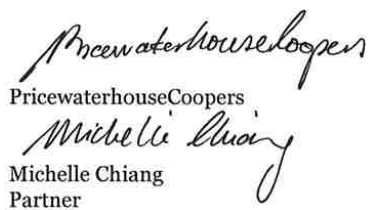 PricewaterhouseCoopers
PricewaterhouseCoopers
Michelle Chiang
Michelle Chiang
Partner